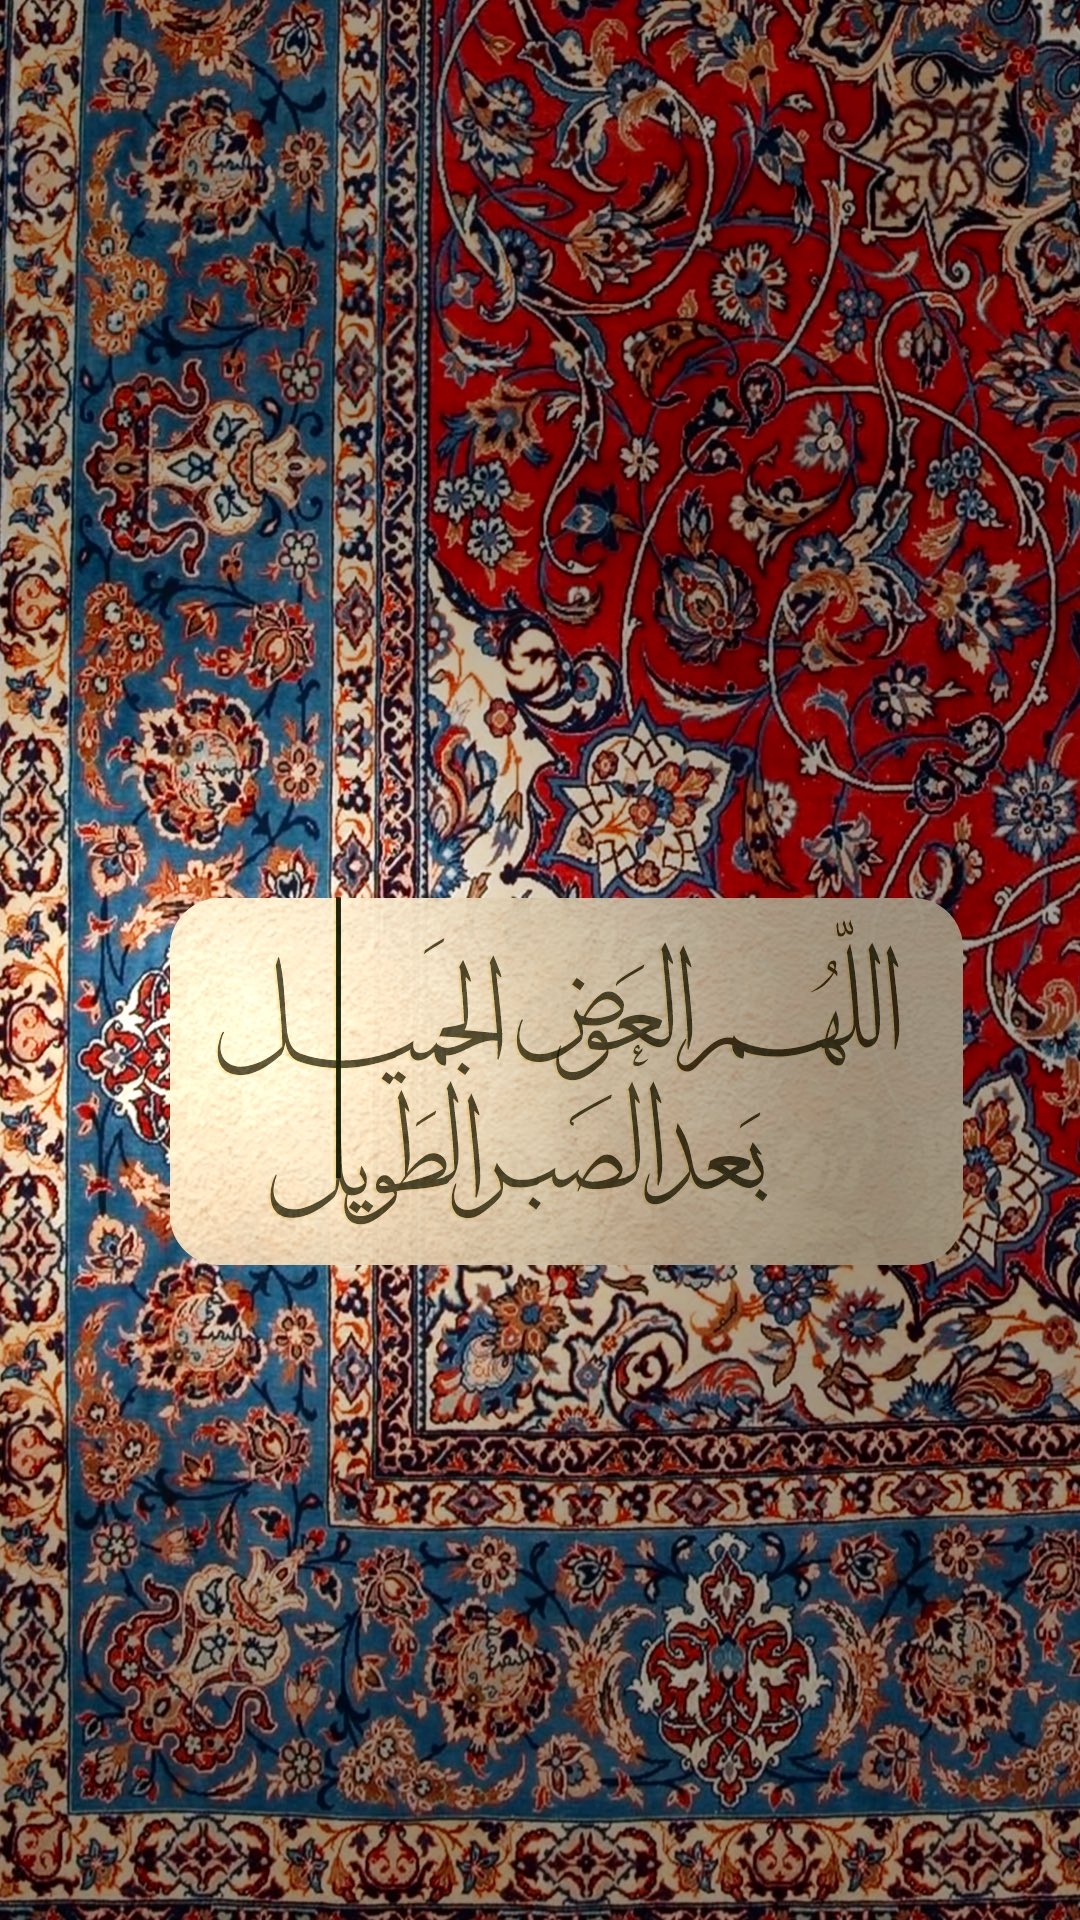 اللّهُم العِوَض الجَميل
بَعد الصَبر الطَويل